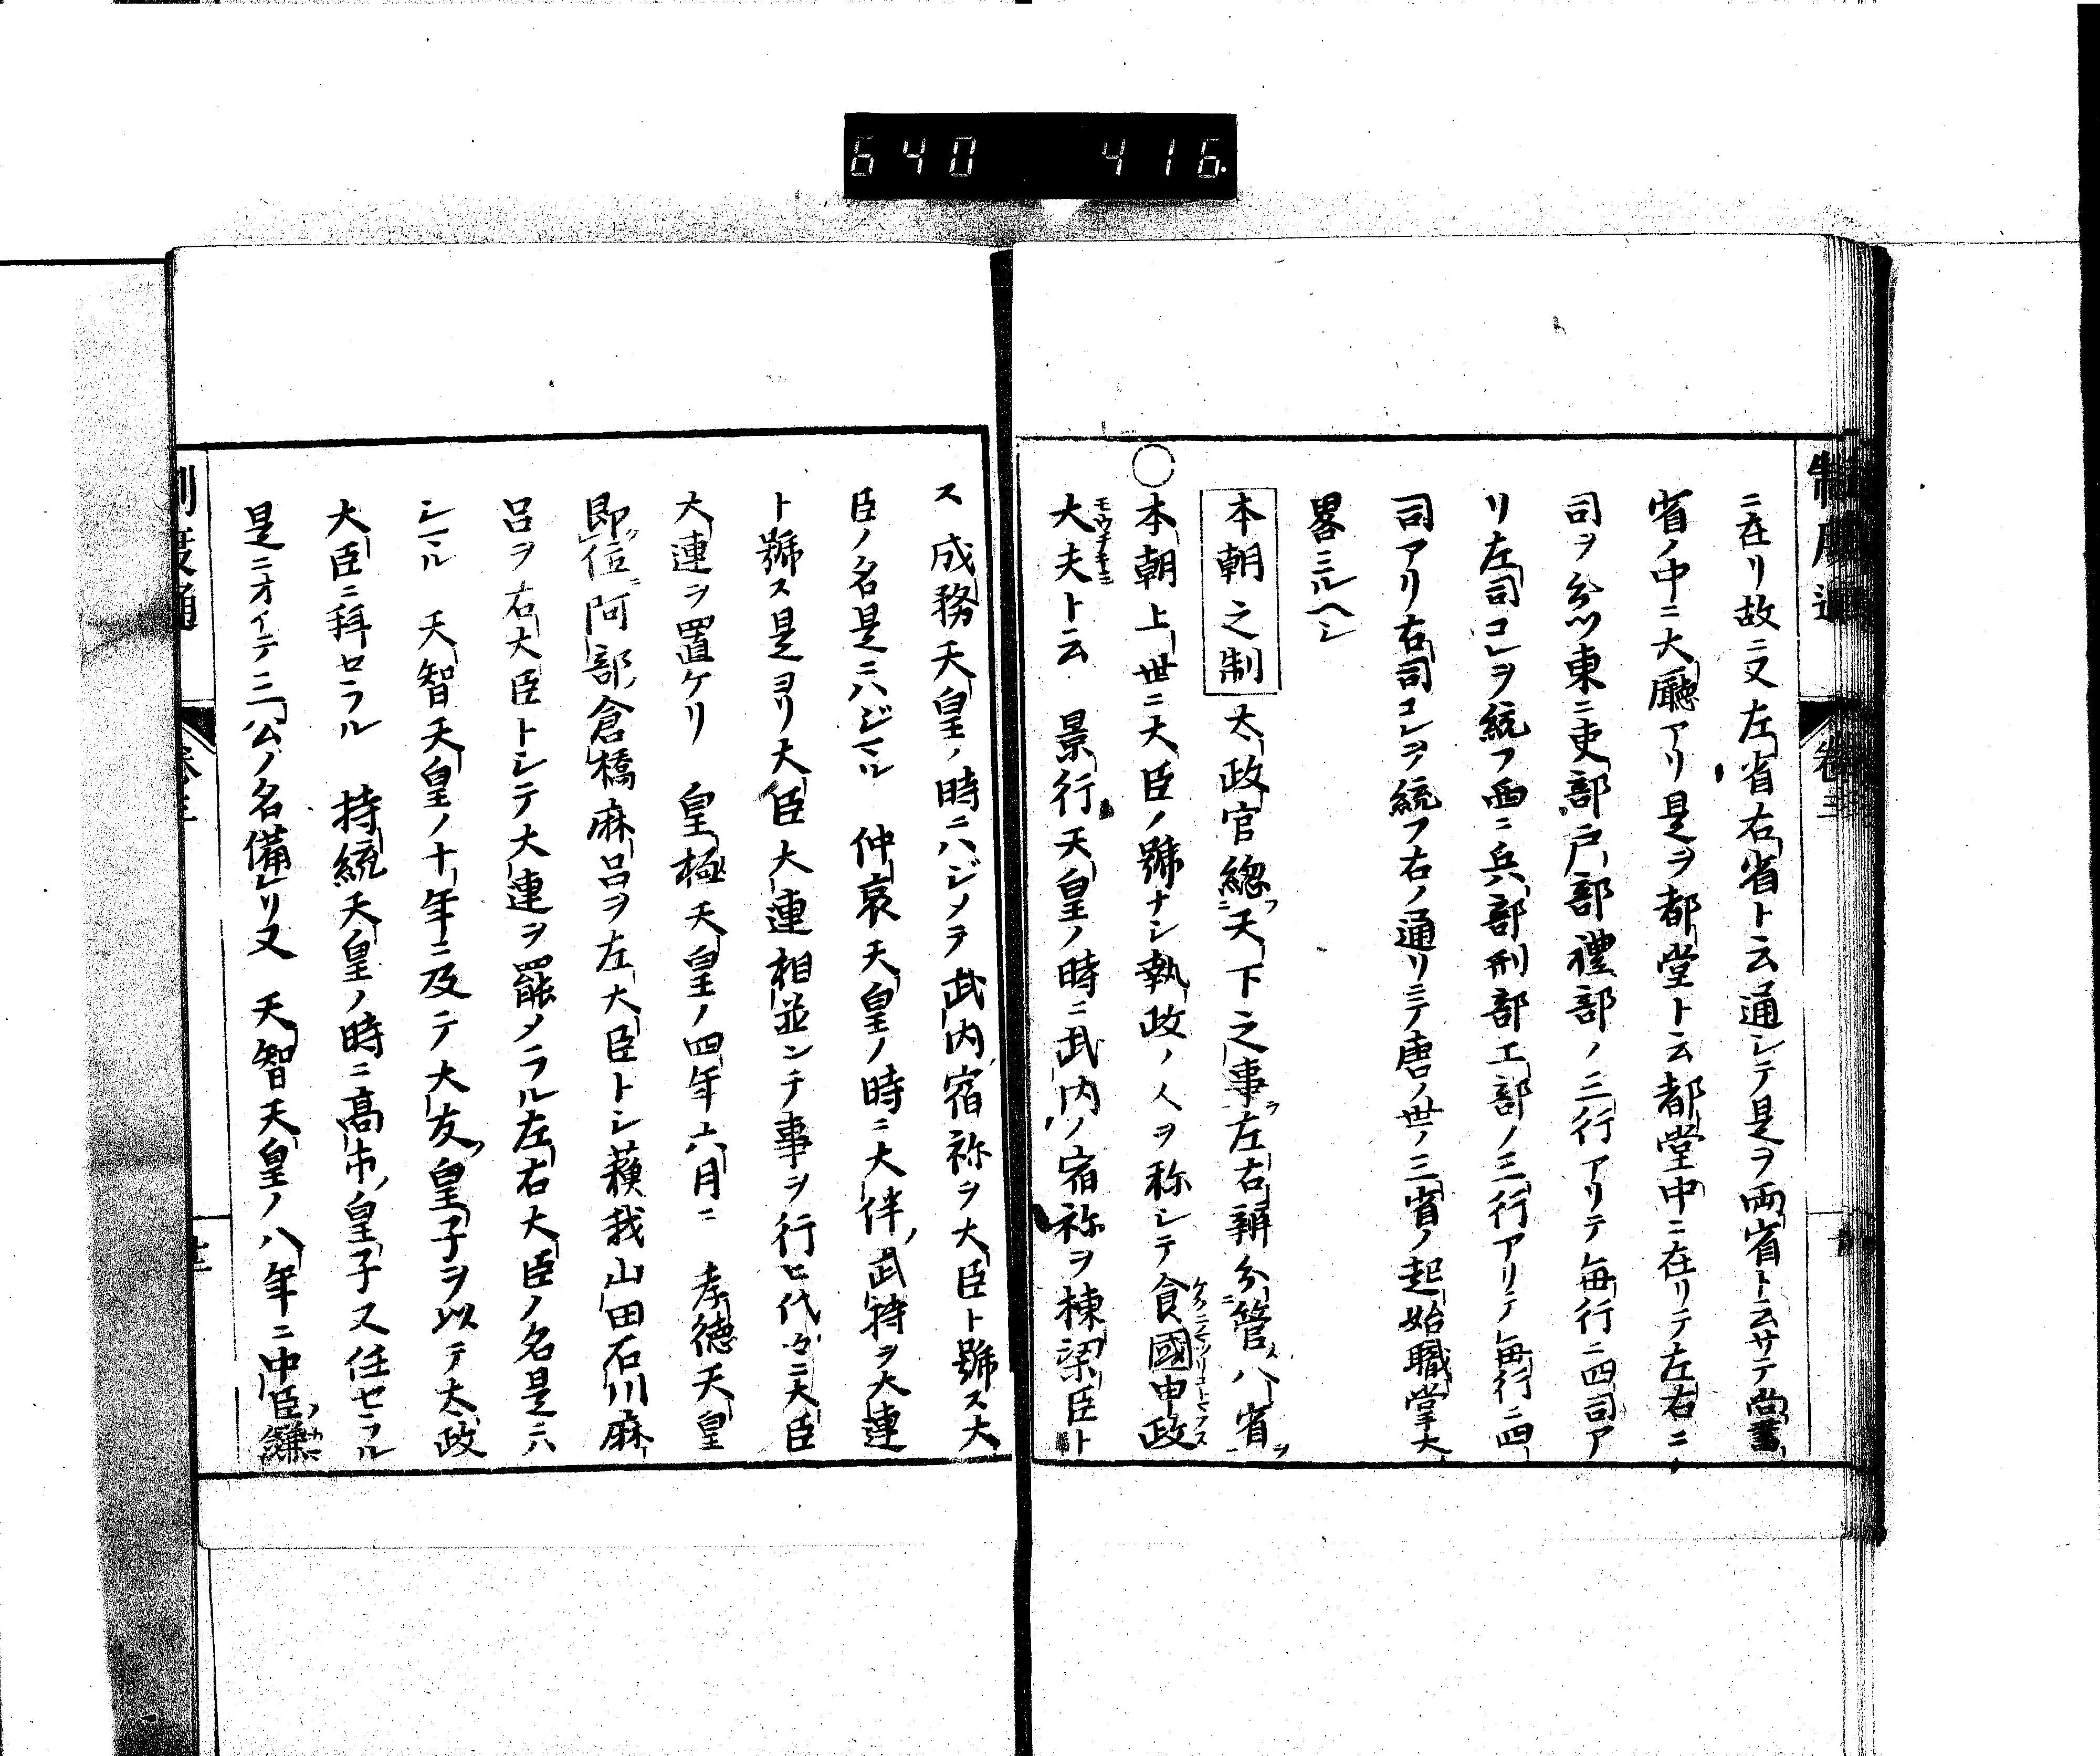 640 416
制度通 卷三
ニ在リ故ニ又左省右省ト云通シテ是ヲ兩省ト云サテ尚書
省ノ中ニ大廳アリ是ヲ都堂ト云都堂中ニ在リテ左右ニ
司ヲ分ツ東ニ吏部戸部禮部ノ三行アリテ毎行ニ四司ア
リ左司コレヲ統フ西ニ兵部刑部工部ノ三行アリテ毎行ニ四
司アリ右司コレヲ統フ右ノ通リニテ唐ノ世ノ三省ノ起始職掌大
畧ミルヘシ
本朝之制 太政官總天下之事左右辨分管八省
○本朝上世ニ大臣ノ號ナシ執政ノ人ヲ称シテ食國申政
大夫ト云 景行天皇ノ時ニ武内ノ宿祢ヲ棟梁臣ト
ス 成務天皇ノ時ニハジメテ武内宿祢ヲ大臣ト號ス大
臣ノ名是ニハジマル 仲哀天皇ノ時ニ大伴武持ヲ大連
ト號ス是ヨリ大臣大連相並ンテ事ヲ行ヒ代々ニ大臣
大連ヲ置ケリ 皇極天皇ノ四年六月ニ 孝徳天皇
即位阿部倉橋麻呂ヲ左大臣トシ蘓我山田石川麻
呂ヲ右大臣トシテ大連ヲ罷メラル左右大臣ノ名是ニハ
シマル 天智天皇ノ十年ニ及テ大友皇子ヲ以テ太政
大臣ニ拜セラル 持統天皇ノ時ニ髙市皇子又任セラル
是ニオイテ三公ノ名備レリ又 天智天皇ノ八年ニ中臣鎌
制度通 卷三